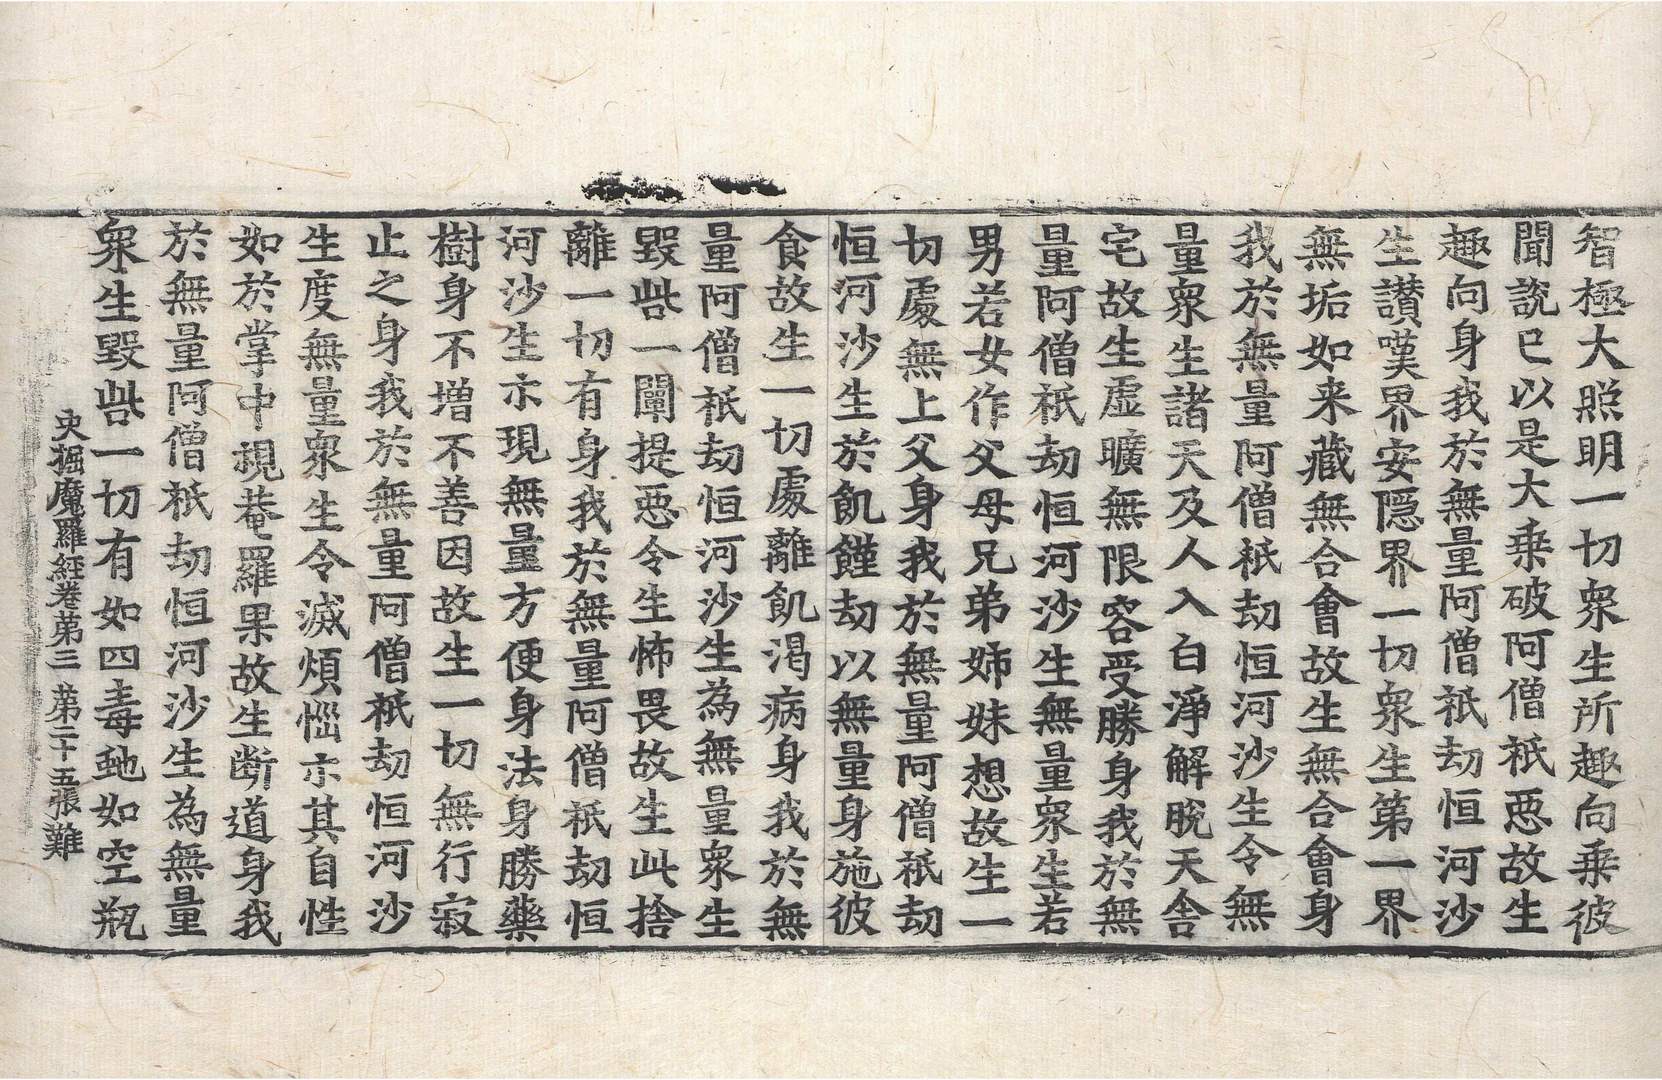 智極大照明一切衆生所趣向乗彼
聞說已以是大乗破阿僧祇惡故生
趣向身我於無量阿僧祇劫恒河沙
生讃嘆界安隠界一切衆生第一界
無垢如来藏無合會故生無合會身
我於無量阿僧祇劫恒河沙生令無
量衆生諸天及人入白淨解脫天舎
宅故生虛曠無限容受勝身我於無
量阿僧祇劫恒河沙生無量衆生若
男若女作父母兄弟姉妹想故生一
切處無上父身我於無量阿僧祇劫
恒河沙生於飢饉劫以無量身施彼
食故生一切處離飢渴病身我於無
量阿僧祇劫恒河沙生為無量衆生
毀呰一闡提惡令生怖畏故生此捨
離一切有身我於無量阿僧祇劫恒
河沙生示現無量方便身法身勝藥
樹身不增不善因故生一切無行寂
止之身我於無量阿僧祇劫恒河沙
生度無量衆生令滅煩惱示其自性
如於掌中視菴羅果故生斷道身我
於無量阿僧祇劫恒河沙生為無量
衆生毀呰一切有如四毒虵如空瓶
央掘魔羅經卷第三 第二十五張 難